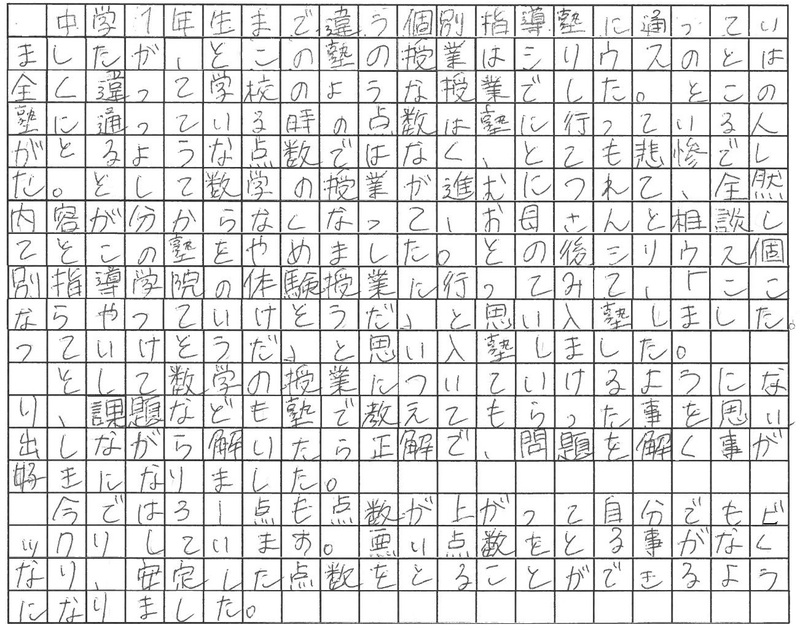 中学1年生まで違う個別指導塾に通ってい
ましたが、そこの塾の授業はシリウスのとは
全く違って学校のような授業でした。そこの
塾に通っている時の点数は塾に行っている人
がとるような点数ではなく、とても悲惨でし
た。そして数学の授業が進むにつれて、全然
内容が分からなくなって、お母さんと相談し
てそこの塾をやめました。その後シリウス個
別指導学院の体験授業に行ってみて、「ここ
ならやっていけそうだ」と思い入塾しました。
っていけそうだ」と思い入塾しました。
そして数学の授業についていけるようにな
り、課題なども塾で教えてもらった事を思い
出しながら解いたら正解で、問題を解く事が
好きになりました。
今では31点も点数が上がって自分でもビ
ックリしています。悪い点数をとる事がなく
なり、安定した点数をとることができるよう
になりました。